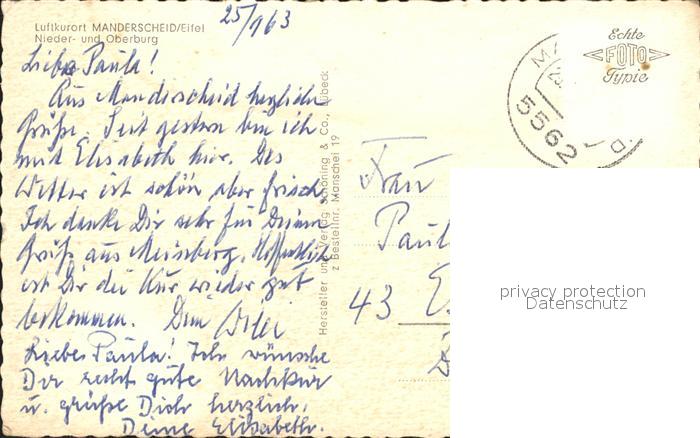 Luftkurort MANDERSCHEID/Eifel
Nieder- und Oberburg
25/963
Liebe Paula!
Aus Manderscheid herzliche
Grüße. Seit gestern bin ich
mit Elisabeth hier. Das
Wetter ist schön aber frisch.
Ich danke Dir sehr für Deinen
Gruß aus Meinberg. Hoffentlich
ist Dir die Kur wieder gut
bekommen. Dein
Liebe Paula! Ich wünsche
Dir recht gute Nachkur
u. grüße Dich herzlich.
Deine Elisabeth.
Hersteller und Verlag Schöning & Co., Lübeck
z Bestellnr. Manschei 19
Echte
FOTO
Typie
5562
Frau
Paul
43 E
privacy protection
Datenschutz